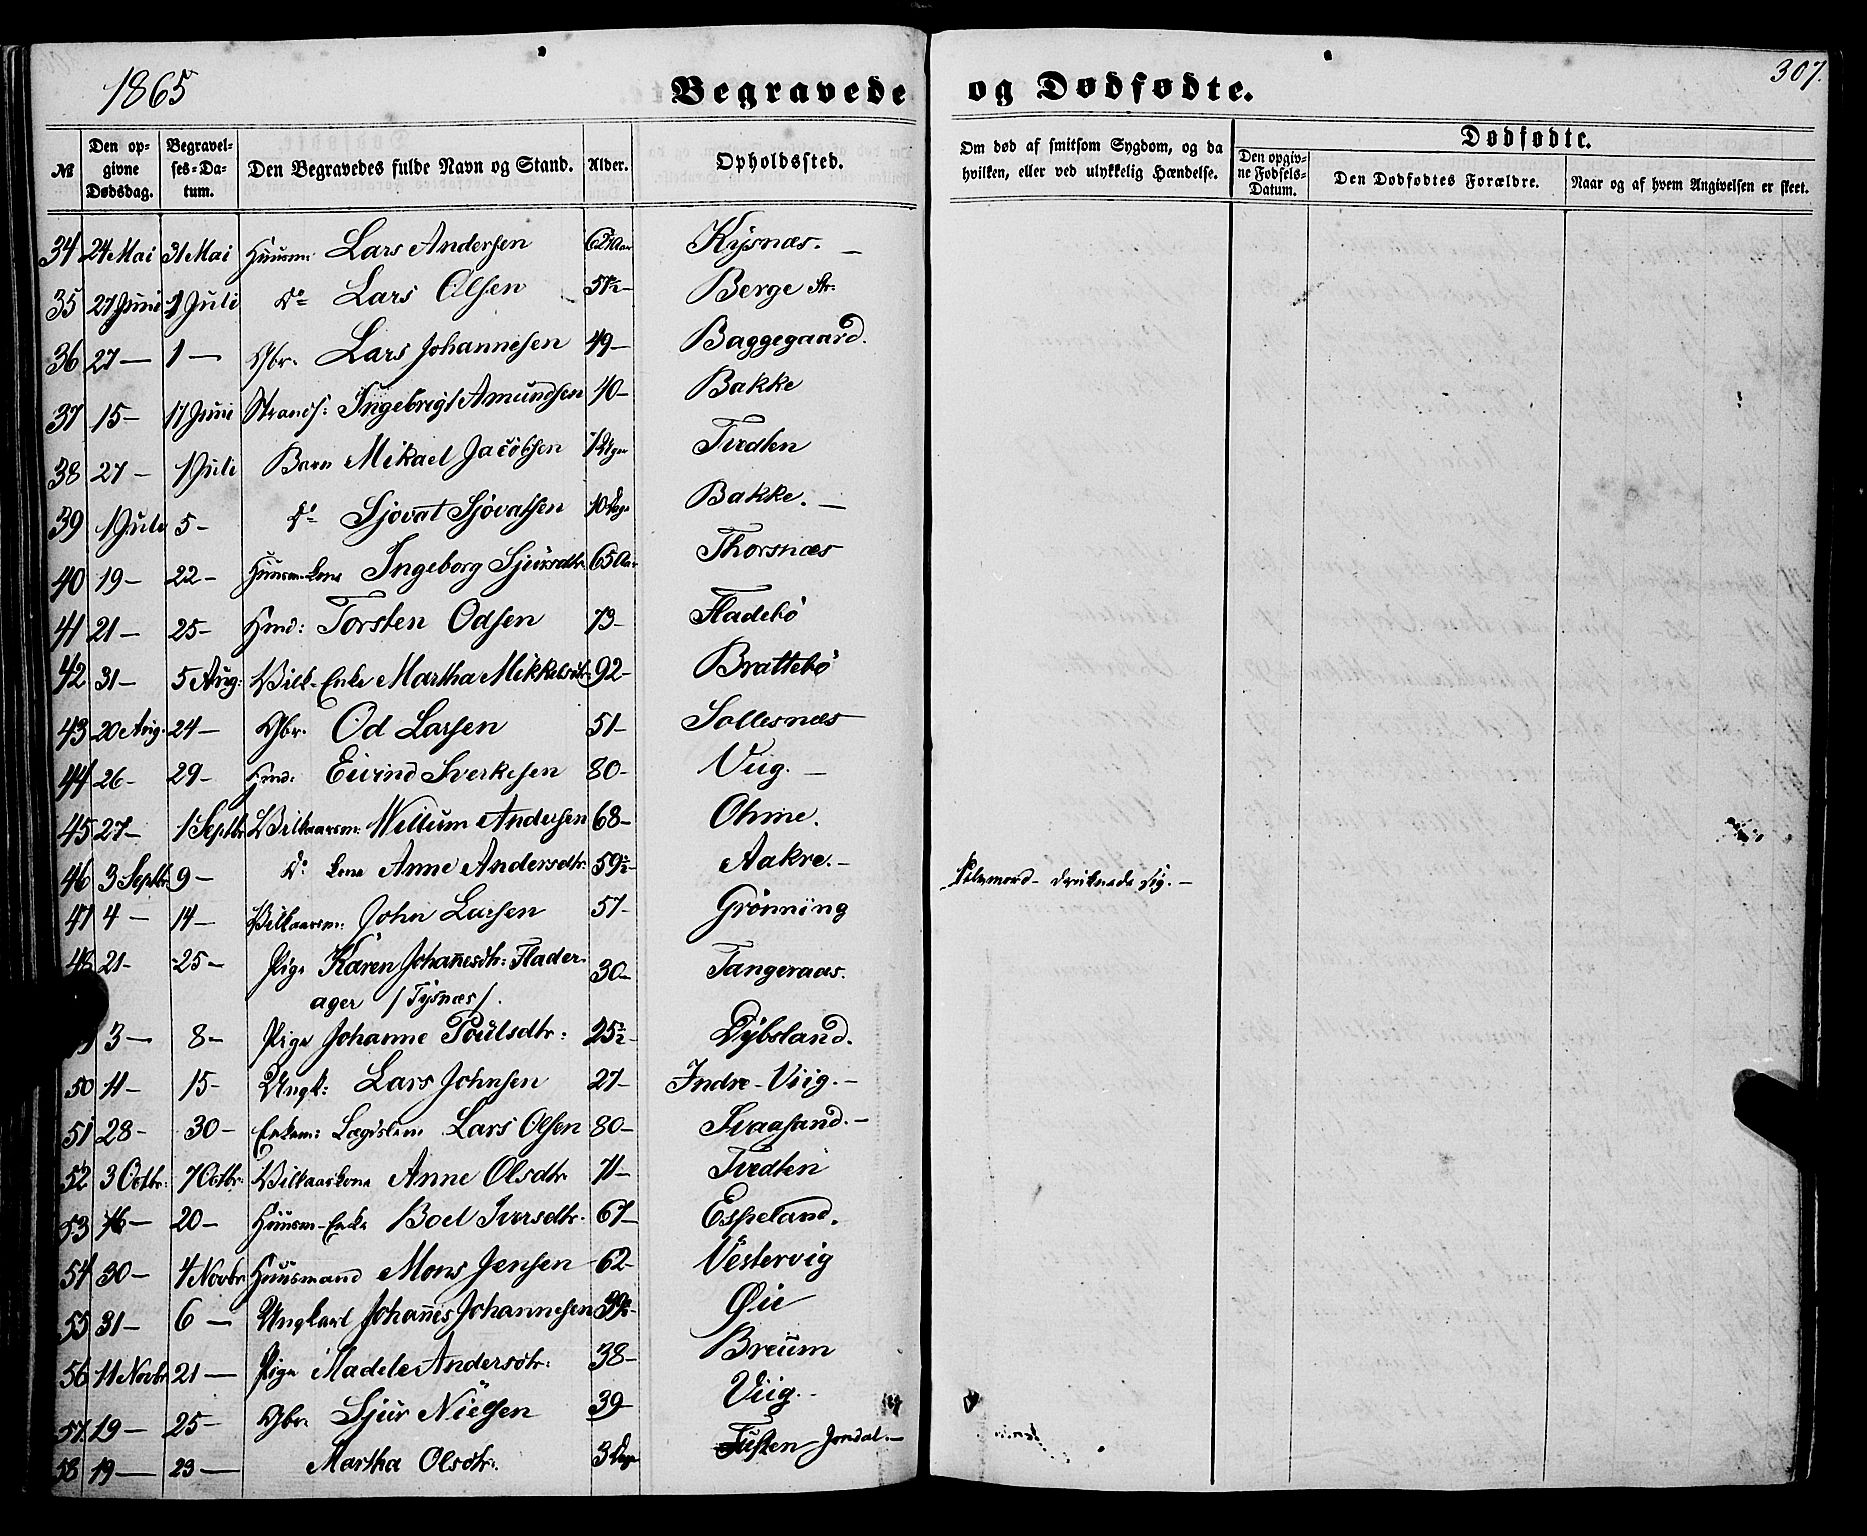 1865
Begravede og Dødfødte.
307.
№ Den opgivne Dødsdag. Begravelses-Datum. Den Begravedes fulde Navn og Stand. Alder. Opholdssted. Om død af smitsom Sygdom, og da hvilken, eller ved ulykkelig Hændelse. Dødfødte. Den opgivne Fødsels-Datum. Den Dødfødtes Forældre. Naar og af hvem Angivelsen er skeet.
34 24 Mai 31 Mai Huusm: Lars Andersen 62 Aar Kysnæs. —
35 27 Juni 1 Juli Do Lars Olsen 57½ — Berge Str:
36 27 — 1 — Gbr. Lars Johannesen 49 — Baggegaard.
37 15 — 17 Juni Strands: Ingebrigt Amundsen 40 — Bakke
38 27 — 1 Juli Barn Mikael Jacobsen Tvedten
39 1 Juli 5 — Do Sjovat Sjovatsen 10 Dage Bakke. —
40 19 — 22 — Huusm. Kone Ingeborg Sjursdtr. 65 Aar Thorsnæs
41 21 — 25 — Hmd: Torsten Odsen 73 — Fladebö
42 31 — 5 Aug: Vilk. Enke Martha Mikkelsdtr 92 — Brattebö
43 20 Aug. 24 — Gbr. Od Larsen 51 — Sollesnæs
44 26 — 29 — Hmd: Eivind Sverkesen 80 — Viig. —
45 27 — 1 Septbr Vilkaarsm: Willum Andersen 68 — Ohme.
46 3 Septbr. 9 — Do Kone Anne Andersdtr. 59½ — Aakre. — Selvmord — druknede sig. —
47 4 — 14 — Vilkaarsm: John Larsen 57 — Grönning
48 21 — 25 — Pige Karen Johannesdtr: Flader- 30 — Tangeraas.
ager / Tysnæs /.
3 — 8 — Pige Johanne Poulsdtr: 25½ — Dybsland.
50 11 — 15 — Ungk: Lars Johnsen 27 — Indre-Viig. —
51 28 — 30 — Enkem: Lægdslem Lars Olsen 80 — Svaasand. —
52 3 Octbr: 7 Octbr: Vilkaarskone Anne Olsdtr 71 — Tvedten
53 16 — 20 — Huusm-Enke Boel Iversdtr. 67 — Espeland.
54 30 — 4 Novbr Huusmand Mons Jensen 62 — Vestervig
55 31 — 6 — Ungkarl Johannes Johannesen 39½ — Øie
56 11 Novbr 21 — Pige Madele Andersdtr: 38 — Breüm
57. 19 — 25 — Gbr. Sjur Nielsen 39 — Viig. —
58 19 — 23 — Martha Olsdtr. 3 Dage Jondal. —